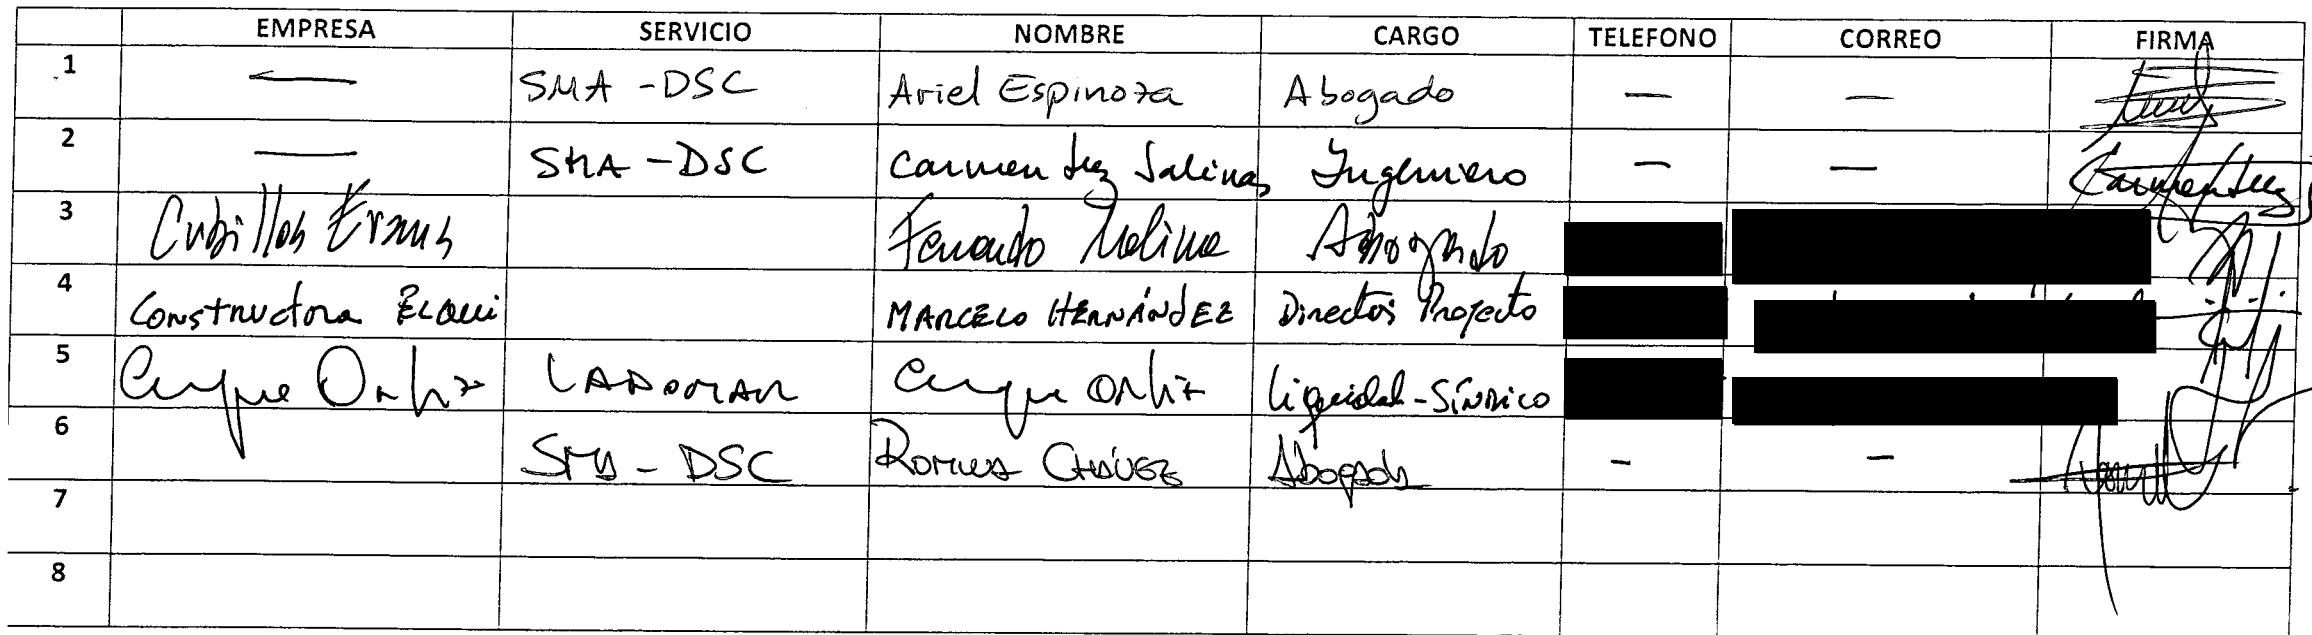 EMPRESA SERVICIO NOMBRE CARGO TELEFONO CORREO FIRMA
1 — SMA - DSC Ariel Espinoza Abogado — —
2 — SMA - DSC Carmen Luz Salinas Ingeniero — — Carmen Luz
3 Cubillos Evans Fernando Molina Abogado
4 Constructora ELQUI MARCELO HERNÁNDEZ Director Proyecto
5 Ortiz Ortiz Síndico
6 SMA - DSC ROMINA CHÁVEZ Abogada - -
7
8